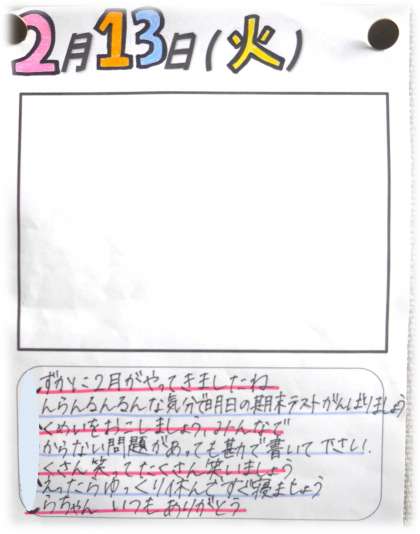 2月13日(火)
ずかに2月がやってきましたね
んらんるんるんな気分で明日の期末テストがんばりましょう
くめいをおこしましょう,みんなで
からない問題があっても勘で書いて下さい.
くさん笑ってたくさん笑いましょう
えったらゆっくり休んですぐ寝ましょう
らちゃん いつもありがとう